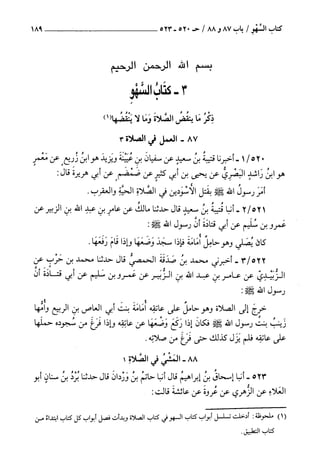 كتاب السَّهْو / باب ٨٧ و ٨٨ / حـ ٥٢٠ - ٥٢٣ ١٨٩
بسم الله الرحمن الرحيم
٣ - كتَابُ السَّهْوِ
ذِكْرُ مَا يَنقُضُ الصَّلاةَ وَمَا لَا يَنْقُضُها(١)
٨٧ - العمل في الصلاة ٣
١/٥٢٠ - أخبرنا قتيبةُ بنُ سعيدٍ عن سفيانَ بنِ عُيَيْنَةَ ويزيدَ هو ابنُ زُريعٍ عن مَعْمَرٍ
هو ابنُ راشدٍ البَصْرِيُّ عن يحيى بنِ أبي كثيرٍ عن ضَمْضَمٍ عن أبي هريرةَ قال:
أمرَ رسولُ الله ﷺ بقتلِ الأسْوَدَينِ في الصَّلاةِ الحيَّةِ والعقربِ.
٢/٥٢١ - أنبا قتيبةُ بنُ سعيدٍ قال حدثنا مالكٌ عن عامرِ بنِ عبدِ الله بنِ الزبيرِ عن
عَمرِو بنِ سُليمٍ عن أبي قتادَةَ أنَّ رسولَ الله ﷺ :
كان يُصَلي وهو حاملٌ أُمَامَةَ فإذا سجدَ وَضَعَها وإذا قامَ رَفَعَها.
٣/٥٢٢ - أخبرني محمد بنُ صَدَقَةَ الحمصيُّ قال حدثنا محمد بن حَرْبٍ عن
الـزُّبَيْـدِيِّ عن عـامـرِ بنِ عبـدِ الله بنِ الـزُّبَيـرِ عن عَمـرِو بنِ سَليمٍ عن أبي قتـادَةَ أنَّ
رسولَ الله ﷺ :
خرجَ إلى الصلاةِ وهو حاملٌ على عاتقِهِ أُمَامَةَ بنتَ أبي العاصِ بنِ الربيعِ وأمُّها
زَيْنَبُ بنتُ رسولِ الله ﷺ فكانَ إذا رَكَعَ وَضَعَها عن عاتقِه وإذا فَرَغَ من سُجودِه حملَها
على عاتقِه فلم يَزَل كذلكَ حتى فَرَغَ من صلاتِه.
٨٨ - المَشْيُ في الصَّلاةِ ١
٥٢٣ - أنبا إسحاقُ بنُ إبراهيمَ قال أنبا حاتمُ بنُ وَرْدانَ قال حدثنا بُرْدُ بنُ سنانٍ أبو
العَلاءِ عن الزُّهري عن عُروةَ عن عائشةَ قالت:
(١) ملحوظة: أدخلت تسلسل أبواب كتاب السهو في كتاب الصلاة وبدأت فصل أبواب كل كتاب ابتداءً من
كتاب التطبيق.